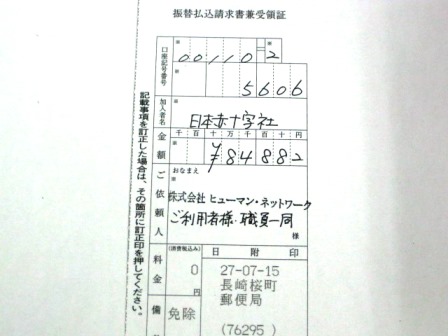 振替払込請求書兼受領証
口座記号番号
00110 2
5606
加入者名
日本赤十字社
金額
千 百 十 万 千 百 十 円
¥84882
ご依頼人
おなまえ
株式会社 ヒューマン・ネットワーク
ご利用者様・職員一同
様
料金
(消費税込み)
0
円
日附印
27-07-15
長崎桜町
郵便局
備
免除
(76295)
記載事項を訂正した場合は、その箇所に訂正印を押してください。